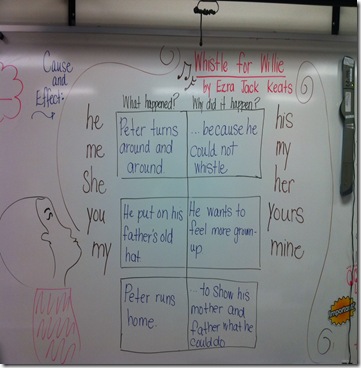 Whistle for Willie
by Ezra Jack Keats
Cause
and
Effect:
What happened?
Why did it happen?
he
me
She
you
my
Peter turns
around and
around
...because he
could not
whistle
He put on his
father's old
hat
He wants to
feel more grown-
up
Peter runs
home.
...to show his
mother and
father what he
could do
his
my
her
yours
mine
Important!